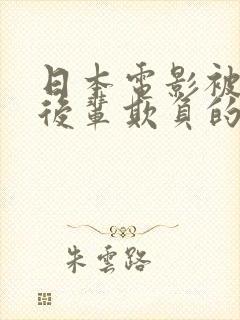 日本電影被
後輩欺負的
朱雲路